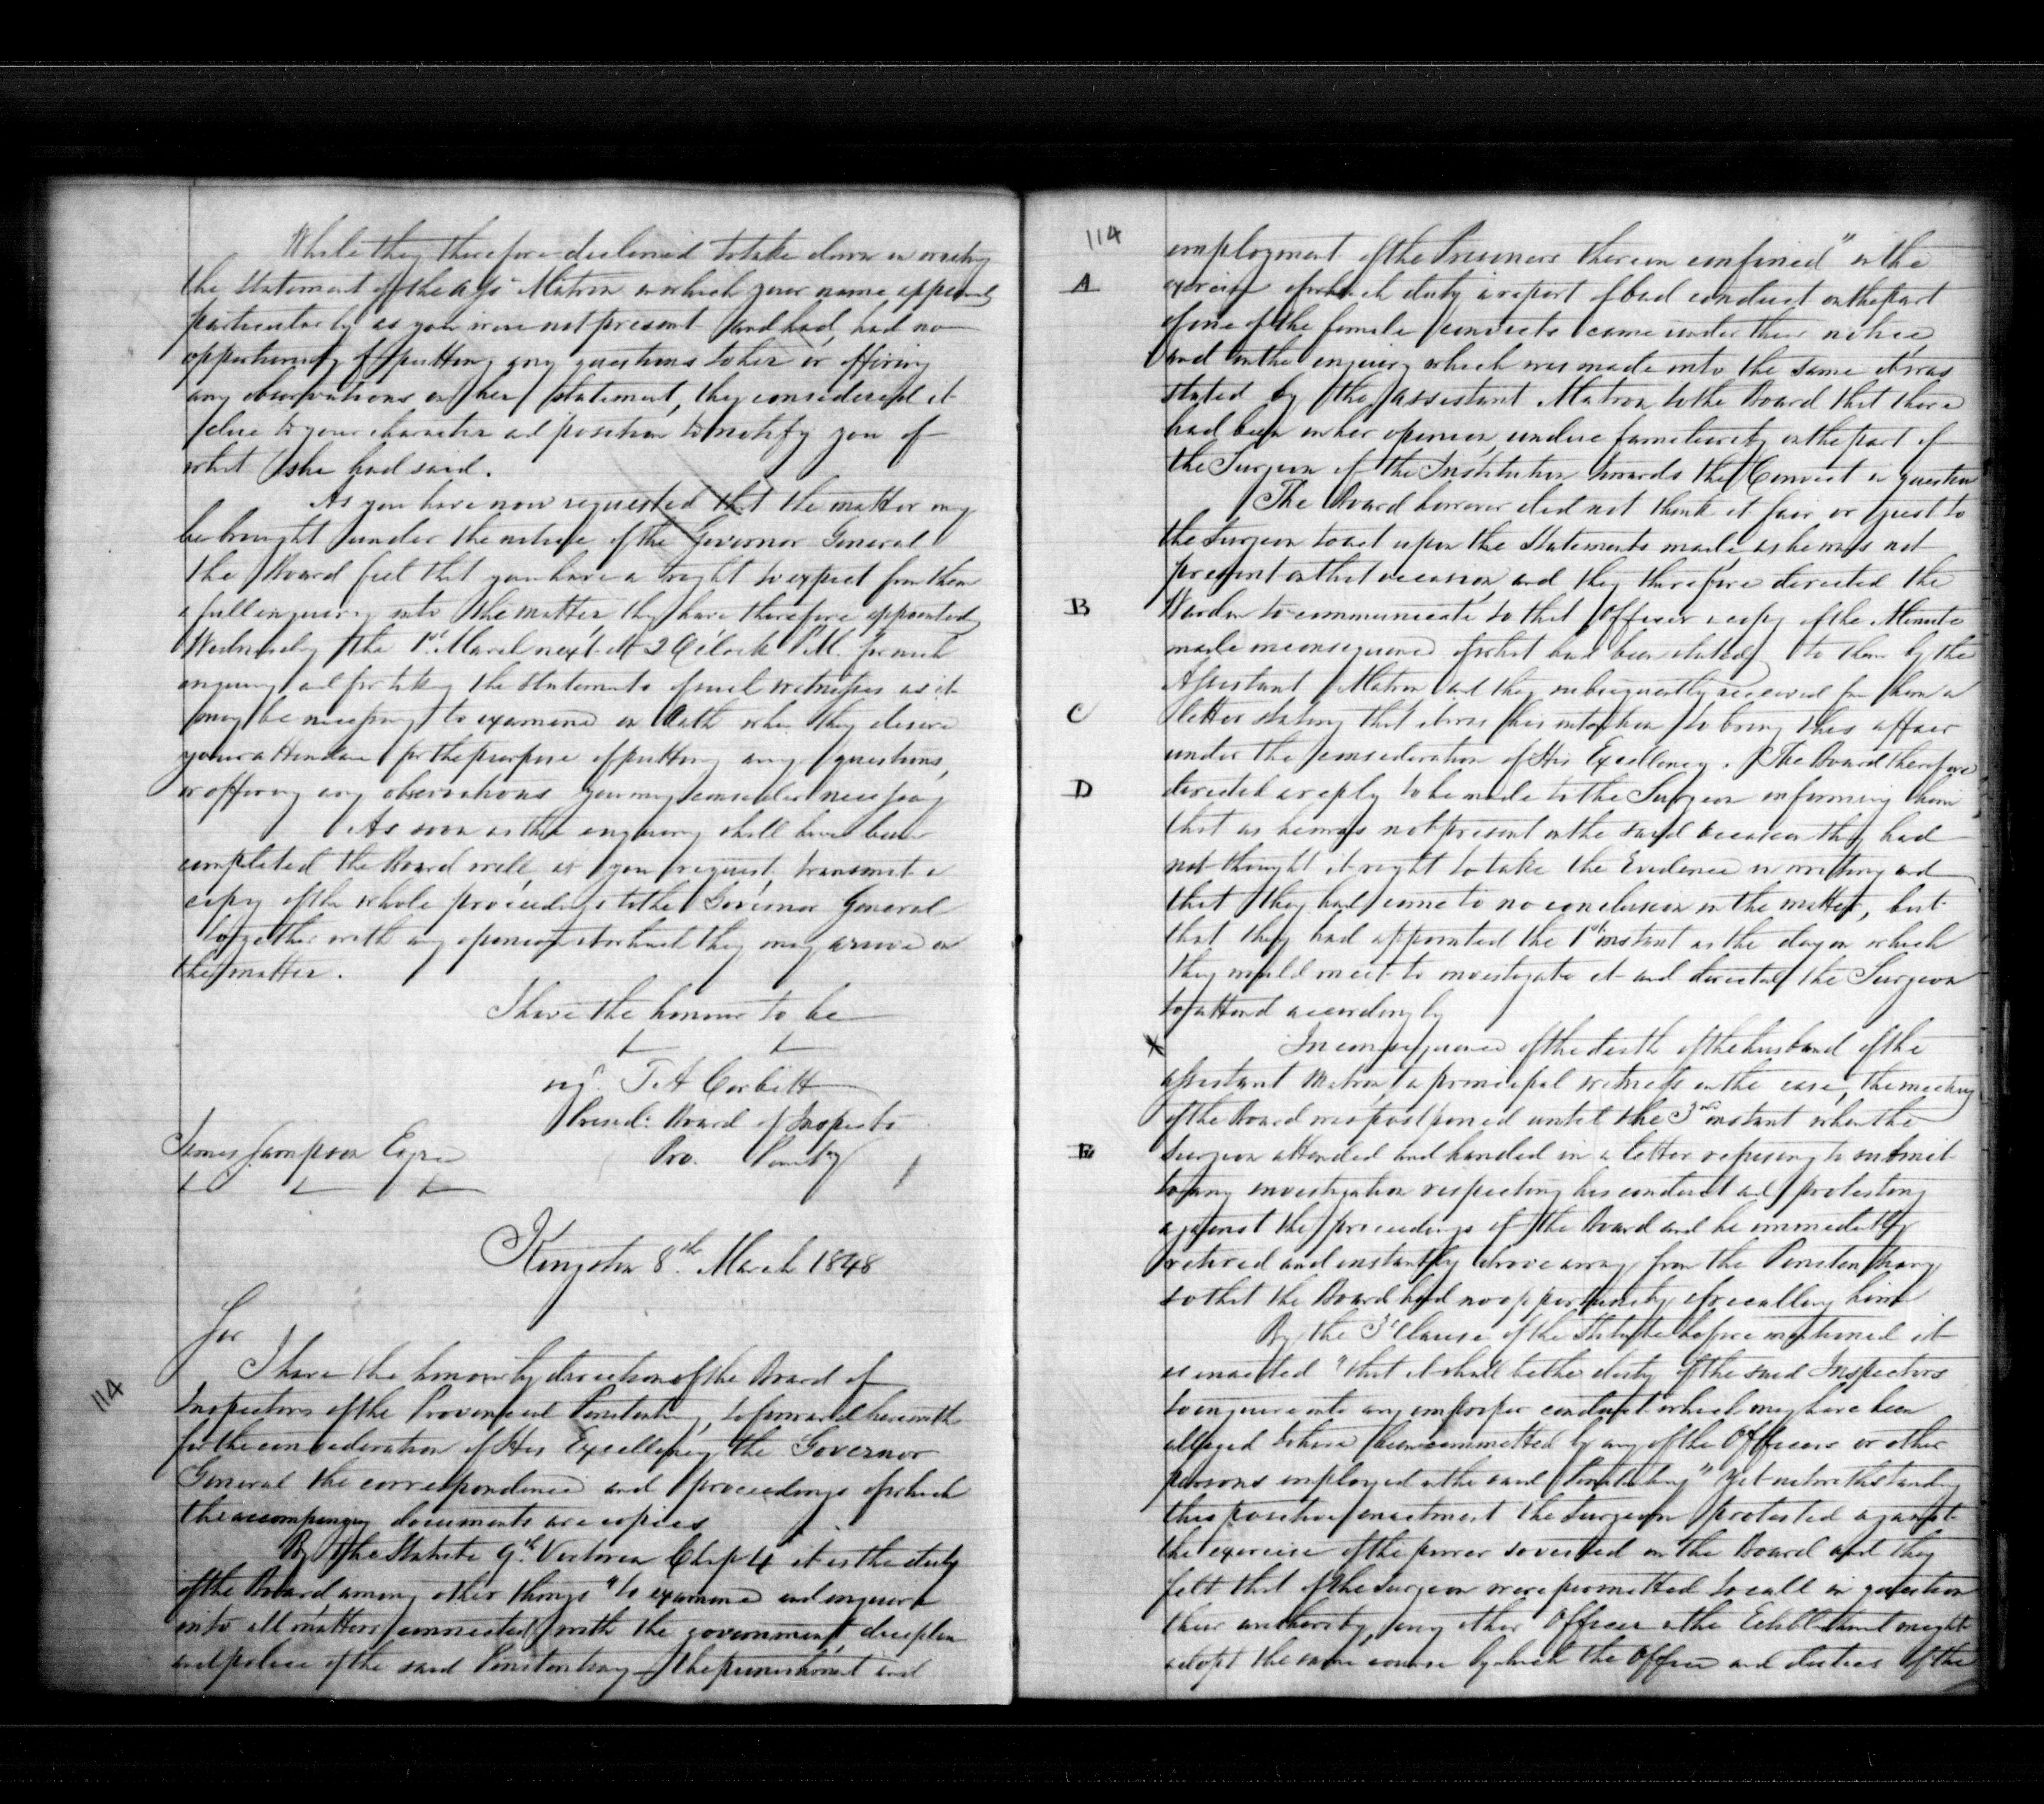 While they therefore declined to take down in writing
the statement of the Asst Matron in which your name appeared
particularly as you were not present and had, had no
opportunity of putting any questions to her or offering
any observations on her statement, they considered it
due to your character and position to notify you of
what she had said.
As you have now requested that the matter may
be brought under the notice of the Governor General
the Board feel that you have a right to expect from them
a full enquiry into the matter, they have therefore appointed
Wednesday the 1st March next at 2 O'Clock P.M. for such
enquiry and for taking the statements of such witnesses as it
may be necessary to examine on Oath when they desire
your attendance for the purpose of putting any questions,
or offering any observations you may consider necessary
As soon as the enquiry shall have been
completed the Board will, as you request, transmit a
copy of the whole proceedings to the Governor General
together with any opinion at which they may arrive on
the matter.
I have the honour to be
sigd. T. A Corbett
Presidt Board of Inspectors
Pro. Penity
James Sampson Esqre
Kingston 8th March 1848
Sir
I have the honour by direction of the Board of
114
Inspectors of the Provincial Penitentiary, to forward herewith
for the consideration of His Excellency the Governor
General the correspondence and proceedings of which
the accompanying documents are copies
By the Statute 9th Victoria Chap 4 it is the duty
of the Board, among other things "to examine and enquire
into all matters connected with the government, discipline
and police of the said Penitentiary the punishment and
114
employment of the Prisoners therein confined" in the
A exercise of which duty a report of bad conduct on the part
of one of the female convicts came under their notice,
and in the enquiry which was made into the same it was
stated by the Assistant Matron to the Board that there
had been in her opinion, undue familiarity on the part of
the Surgeon of the Institution towards the Convict in question
The Board however did not think it fair or just to
the Surgeon to act upon the Statements made, as he was not
present on that occasion, and they therefore directed the
B Warden to communicate to that Officer a copy of the Minute
made in consequence of what had been stated to them by the
Assistant Matron and they subsequently received from him a
C letter stating that it was his intention to bring this affair
under the consideration of His Excellency. The Board therefore
D directed a reply to be made to the Surgeon informing him
that as he was not present on the said occasion they had
not thought it right to take the Evidence in writing and
that they had come to no conclusion in the matter, but
that they had appointed the 1st instant as the day on which
they would meet to investigate it and directed the Surgeon
to attend accordingly
x In consequence of the death of the husband of the
assistant Matron, a principal witness in the case, the meeting
of the Board was postponed until the 3rd instant when the
E Surgeon attended and handed in a letter refusing to submit
to any investigation respecting his conduct and protesting
against the proceedings of the Board and he immediately
retired and instantly drove away from the Penitentiary
so that the Board had no opportunity of recalling him
By the 3d Clause of the Statute before mentioned it
is enacted "that it shall be the duty of the said Inspectors
to enquire into any improper conduct which may have been
alleged to have been committed by any of the Officers or other
persons employed in the said Penitentiary" Yet notwithstanding
this positive enactment the Surgeon protested against
the exercise of the power so vested in the Board and they
felt that if the Surgeon were permitted to call in question
their authority, any other Officer in the Establishment might
adopt the same course by which the Office and duties of the